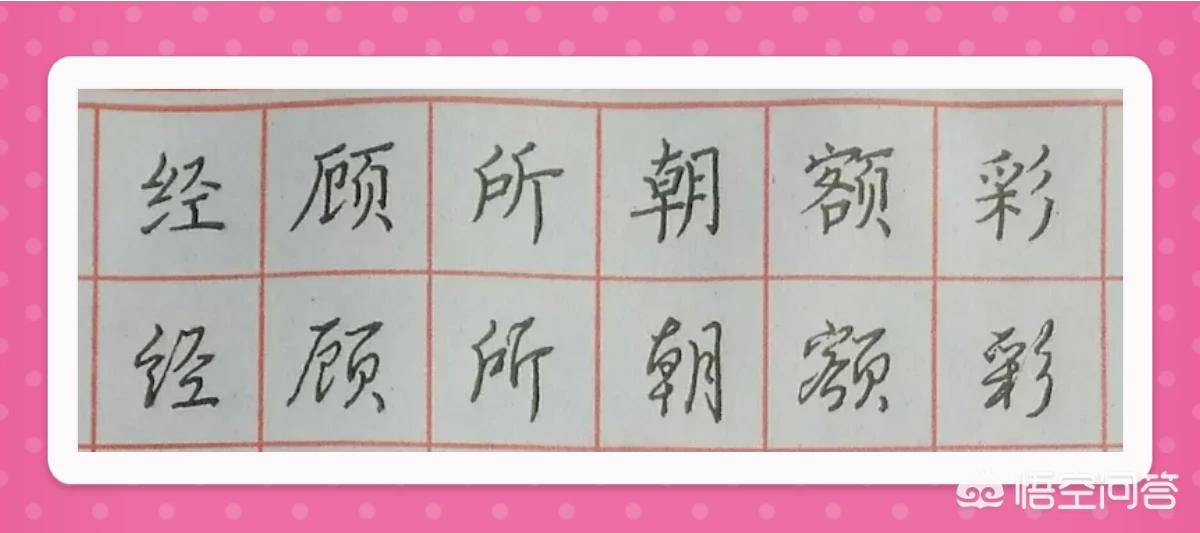 经顾所朝额彩
经顾所朝额彩
悟空问答